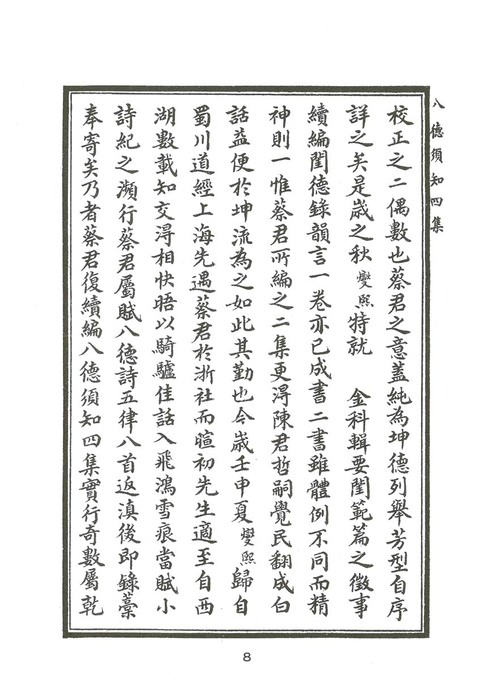 八德須知四集
校正之二偶數也蔡君之意蓋純為坤德列舉芳型自序
詳之矣是歲之秋燮熙特就　金科輯要閨範篇之徵事
續編閨德錄韻言一卷亦已成書二書雖體例不同而精
神則一惟蔡君所編之二集更淂陳君哲嗣覺民翻成白
話益便於坤流為之如此其勤也今歲壬申夏燮熙歸自
蜀川道經上海先遇蔡君於浙社而暄初先生適至自西
湖數載知交淂相快晤以騎驢佳話入飛鴻雪痕當賦小
詩紀之瀕行蔡君屬賦八德詩五律八首返滇後即錄藁
奉寄矣乃者蔡君復續編八德須知四集實行奇數屬乾
8